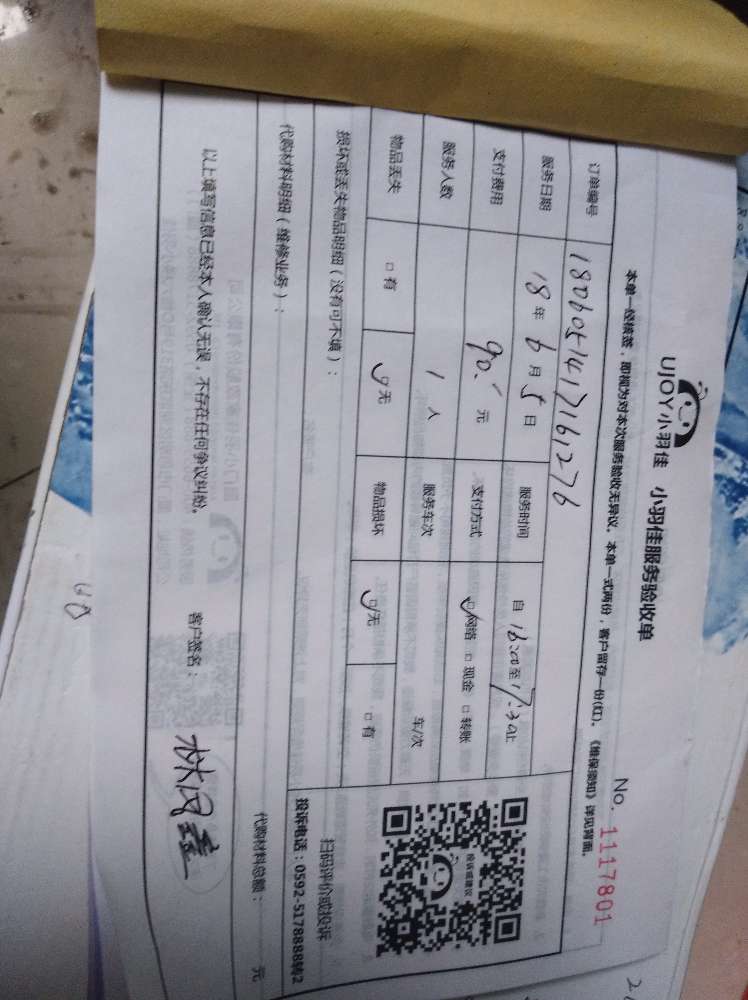 UJOY小羽佳 小羽佳服务验收单
No. 1117801
本单一经核签，即视为对本次服务验收无异议。本单一式两份，客户留存一份(红)。《维保须知》详见背面。
订单编号 1806051417161276
服务日期 18年6月5日 服务时间 自16:00至17:30止
支付费用 90.元 支付方式 ☑网络 □现金 □转账
服务人数 1人 服务车次 车/次
物品丢失 □有 ☑无 物品损坏 ☑无 □有
投诉或建议
扫码评价或投诉
投诉电话：0592-5178888转2
损坏或丢失物品明细（没有可不填）：
代购材料明细（维修业务）：
代购材料总额： 元
以上填写信息已经本人确认无误，不存在任何争议纠纷。
客户签名：